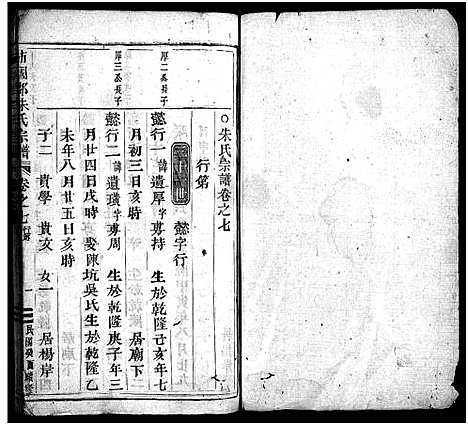 朱氏宗譜卷之七
行第
懿字行
厚二公長子
懿行一 諱遺厚字專持 生於乾隆己亥年七
月初三日亥時 居廟下二
厚三公長子
懿行二 諱遺璜字專周 生於乾隆庚子年三
月廿四日戌時 娶陳坑吳氏生於乾隆乙
未年八月廿五日亥時
子二 貴學 貴亥 女一 居楊岸
朱氏宗譜 卷之七 行第 一